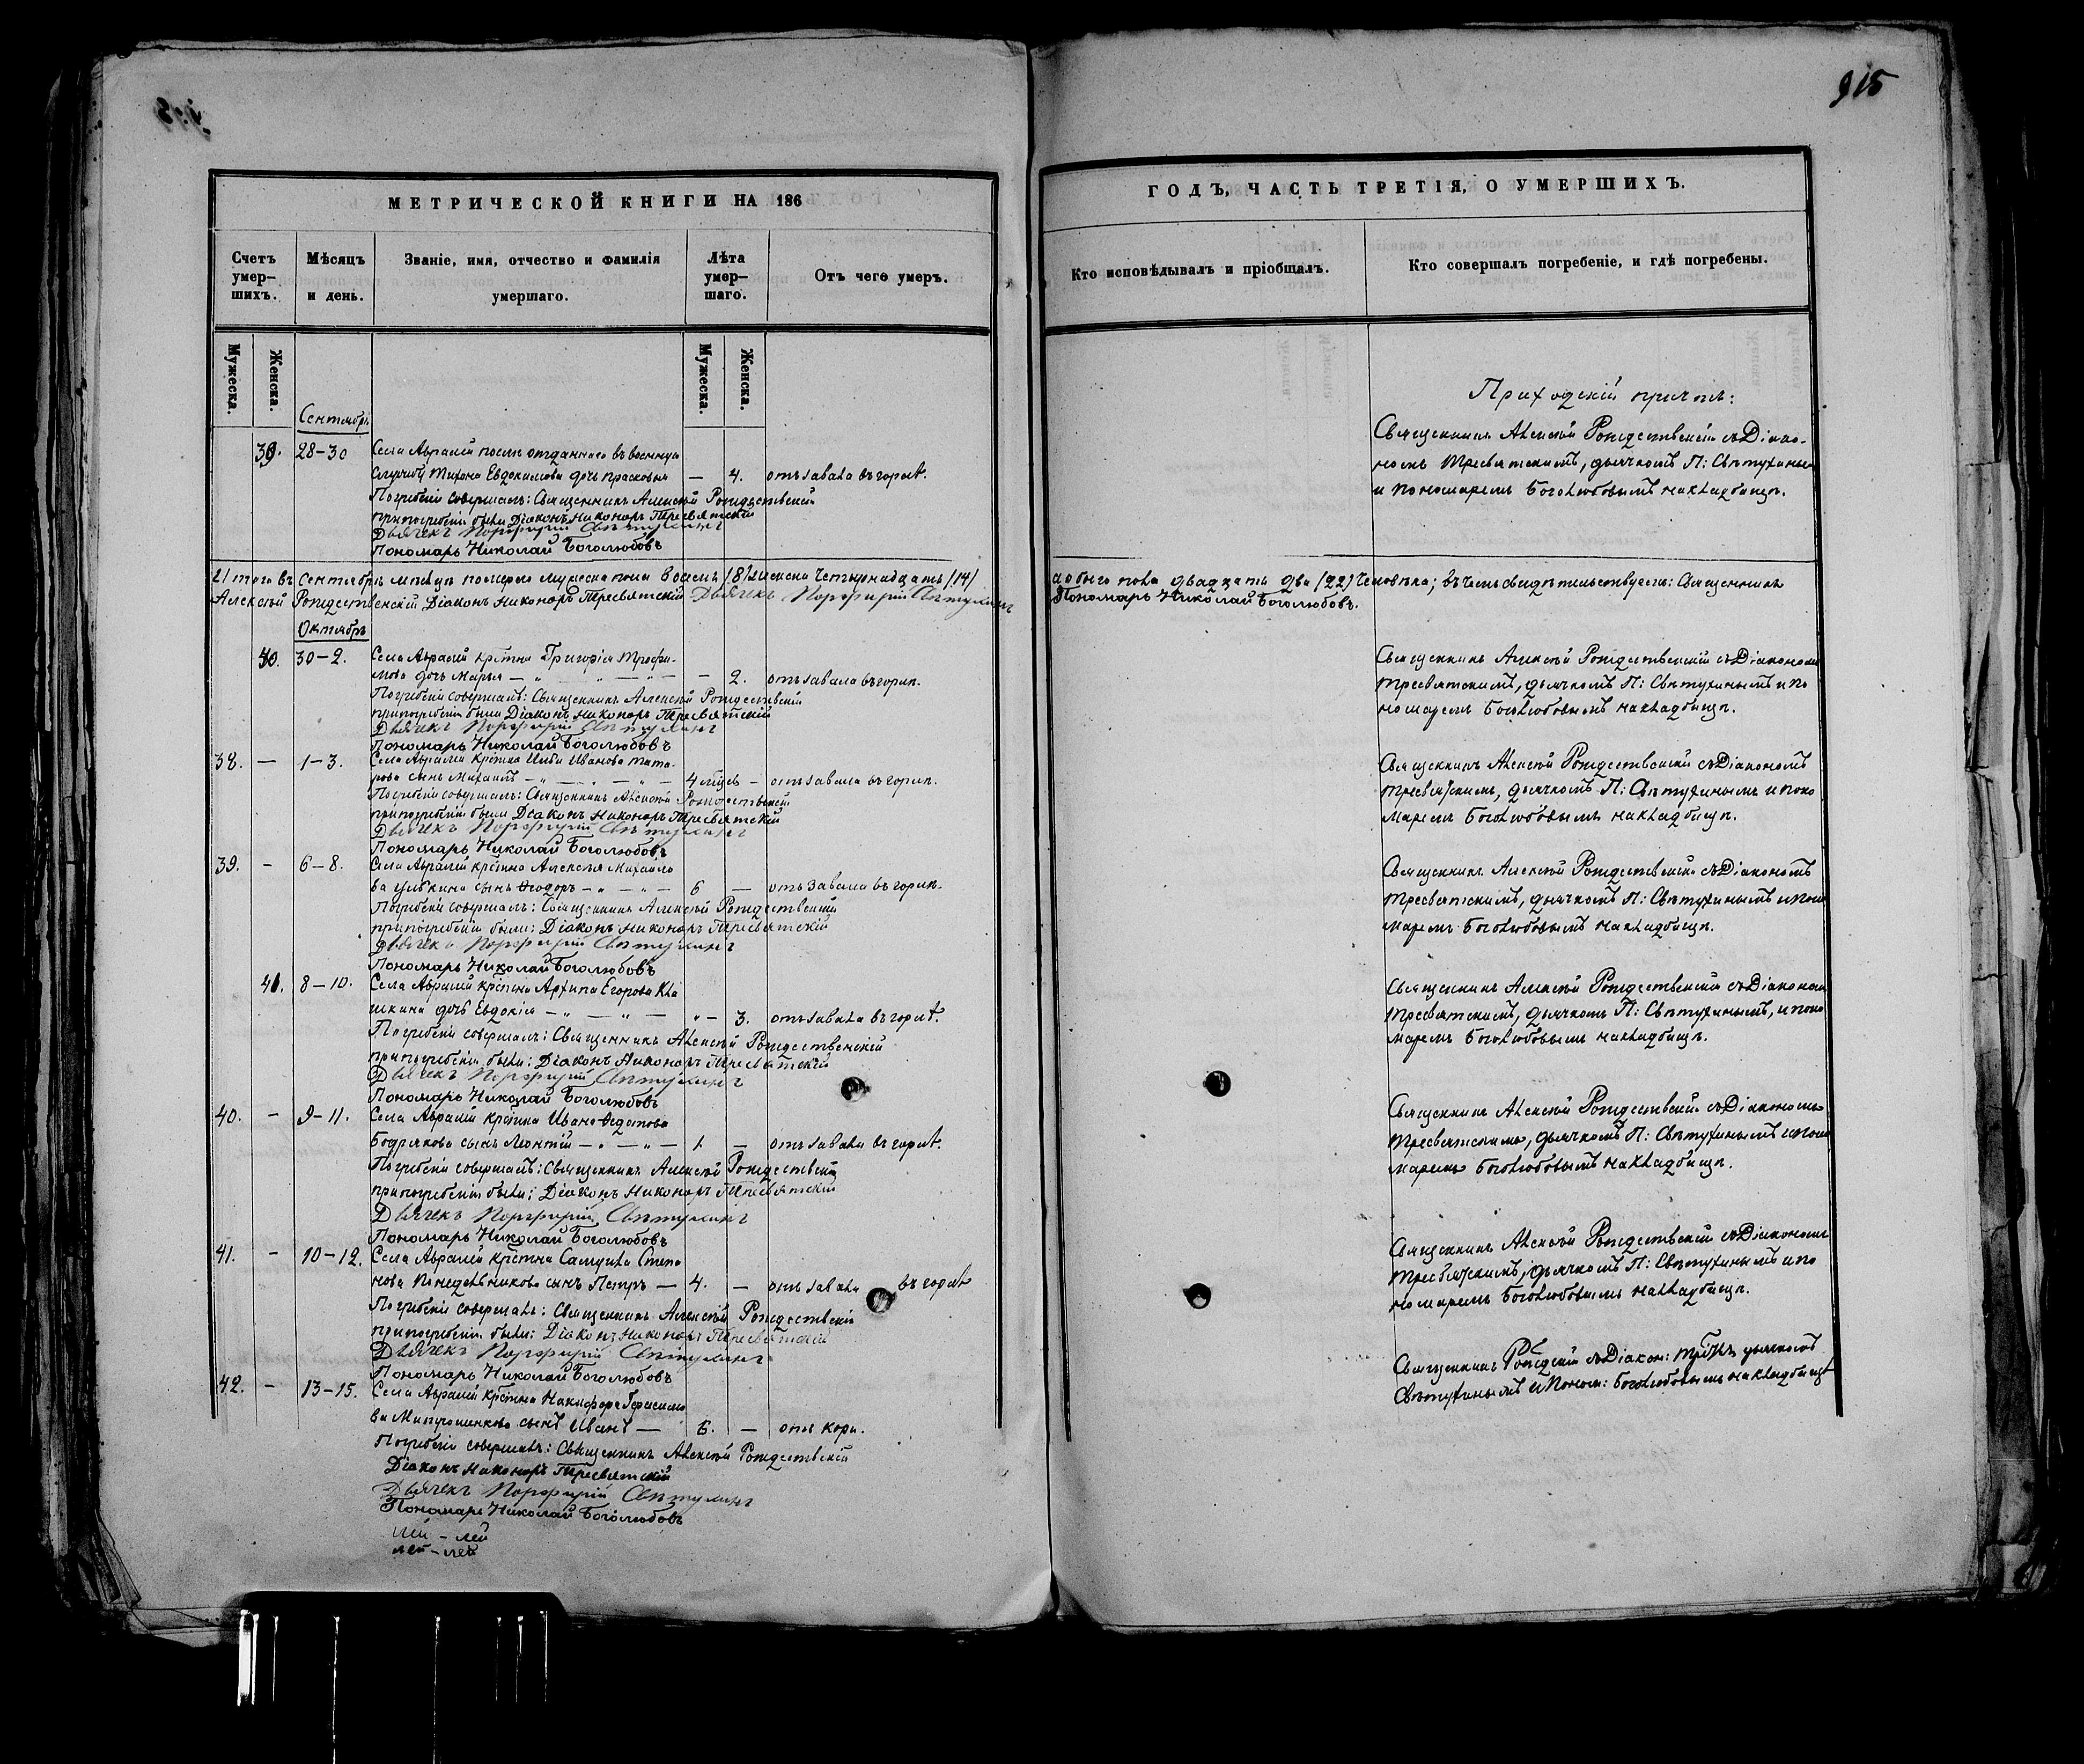 915
МЕТРИЧЕСКОЙ КНИГИ НА 186
Счетъ умер-шихъ.
Мѣсяцъ и день.
Званіе, имя, отчество и фамилія умершаго.
Лѣта умер-шаго.
Отъ чего умеръ.
Мужеска.
Женска.
Мужеска.
Женска.
Сентябрь
39. 28-30 Села Аврамей послѣ отданнаго въ военную
службу Тихона Евдокимова дочь Прасковья — 4. отъ завала въ горлѣ.
Погребеніе совершалъ: Священникъ Алексѣй Рождественскій
при погребеніи были Діаконъ Никоноръ Тресвятскій
Дьячекъ Порфирій Свѣтухинъ
Пономарь Николай Боголюбовъ
Итого въ Сентябрѣ мѣсяцѣ померло мужеска пола восемь (8) женска четырнадцать (14)
Алексѣй Рождественскій Діаконъ Никоноръ Тресвятскій Дьячекъ Порфирій Свѣтухинъ
Октябрь
40. 30-2. Села Аврамей крестна Григорія Трофи-
мова дочь Марья — „ — „ — — 2. отъ завала въ горлѣ.
Погребеніе совершалъ: Священникъ Алексѣй Рождественскій
при погребеніи были Діаконъ Никоноръ Тресвятскій
Дьячекъ Порфирій Свѣтухинъ
Пономарь Николай Боголюбовъ
38. — 1-3. Села Аврамей крестна Иванова
сынъ Михаилъ — „ — „ — 4 — отъ завала въ горлѣ.
Погребеніе совершалъ: Священникъ Алексѣй Рождественскій
при погребеніи были Діаконъ Никоноръ Тресвятскій
Дьячекъ Порфирій Свѣтухинъ
Пономарь Николай Боголюбовъ
39. — 6-8. Села Аврамей крестна Алексѣя Михайло
ва сынъ Ѳеодоръ — „ — „ — 6 — отъ завала въ горлѣ.
Погребеніе совершалъ: Священникъ Алексѣй Рождественскій
при погребеніи были: Діаконъ Никоноръ Тресвятскій
Дьячекъ Порфирій Свѣтухинъ
Пономарь Николай Боголюбовъ
41. 8-10. Села Аврамей крестна Архипа Егорова Ква
шкина дочь Евдокія — „ — „ — „ — 3. отъ завала въ горлѣ.
Погребеніе совершалъ: Священникъ Алексѣй Рождественскій
при погребеніи были: Діаконъ Никоноръ Тресвятскій
Дьячекъ Порфирій Свѣтухинъ
Пономарь Николай Боголюбовъ
40. — 9-11. Села Аврамей крестна Ивана Ѳедотова
Бодрякова сынъ Леонтій — „ — „ — 1. — отъ завала въ горлѣ.
Погребеніе совершалъ: Священникъ Алексѣй Рождественскій
при погребеніи были: Діаконъ Никоноръ Тресвятскій
Дьячекъ Порфирій Свѣтухинъ
Пономарь Николай Боголюбовъ
41. — 10-12. Села Аврамей крестна Самуила Степа
нова Понедельникова сынъ Петръ — 4. — отъ завала въ горлѣ
Погребеніе совершалъ: Священникъ Алексѣй Рождественскій
при погребеніи были: Діаконъ Никоноръ Тресвятскій
Дьячекъ Порфирій Свѣтухинъ
Пономарь Николай Боголюбовъ
42. — 13-15. Села Аврамей крестна Никифора Герасимо
ва сынъ Иванъ — 6. — отъ кори.
Погребеніе совершалъ: Священникъ Алексѣй Рождественскій
Діаконъ Никоноръ Тресвятскій
Дьячекъ Порфирій Свѣтухинъ
Пономарь Николай Боголюбовъ
ГОДЪ, ЧАСТЬ ТРЕТІЯ, О УМЕРШИХЪ.
Кто исповѣдывалъ и пріобщалъ.
Кто совершалъ погребеніе, и гдѣ погребены.
Приходскій причтъ:
Священникъ Алексѣй Рождественскій съ Діако-
номъ Тресвятскимъ, дьячкомъ П: Свѣтухинымъ
и пономаремъ Боголюбовымъ на кладбищѣ.
а обоего пола двадцать два (22) человѣка; въ чемъ свидѣтельствуемъ: Священникъ
Пономарь Николай Боголюбовъ.
Священникъ Алексѣй Рождественскій съ Діакономъ
Тресвятскимъ, дьячкомъ П: Свѣтухинымъ и по
номаремъ Боголюбовымъ на кладбищѣ.
Священникъ Алексѣй Рождественскій съ Діакономъ
Тресвятскимъ, дьячкомъ П: Свѣтухинымъ и поно
маремъ Боголюбовымъ на кладбищѣ.
Священникъ Алексѣй Рождественскій съ Діакономъ
Тресвятскимъ, дьячкомъ П: Свѣтухинымъ и поно
маремъ Боголюбовымъ на кладбищѣ.
Священникъ Алексѣй Рождественскій съ Діакономъ
Тресвятскимъ, дьячкомъ П: Свѣтухинымъ, и поно
маремъ Боголюбовымъ на кладбищѣ.
Священникъ Алексѣй Рождественскій съ Діакономъ
Тресвятскимъ, дьячкомъ П: Свѣтухинымъ и поно
маремъ Боголюбовымъ на кладбищѣ.
Священникъ Алексѣй Рождественскій съ Діакономъ
Тресвятскимъ, дьячкомъ П: Свѣтухинымъ и по
номаремъ Боголюбовымъ на кладбищѣ.
Священникъ съ Діакон: дьячкомъ
Свѣтухинымъ и Поном: Боголюбовымъ на кладбищѣ